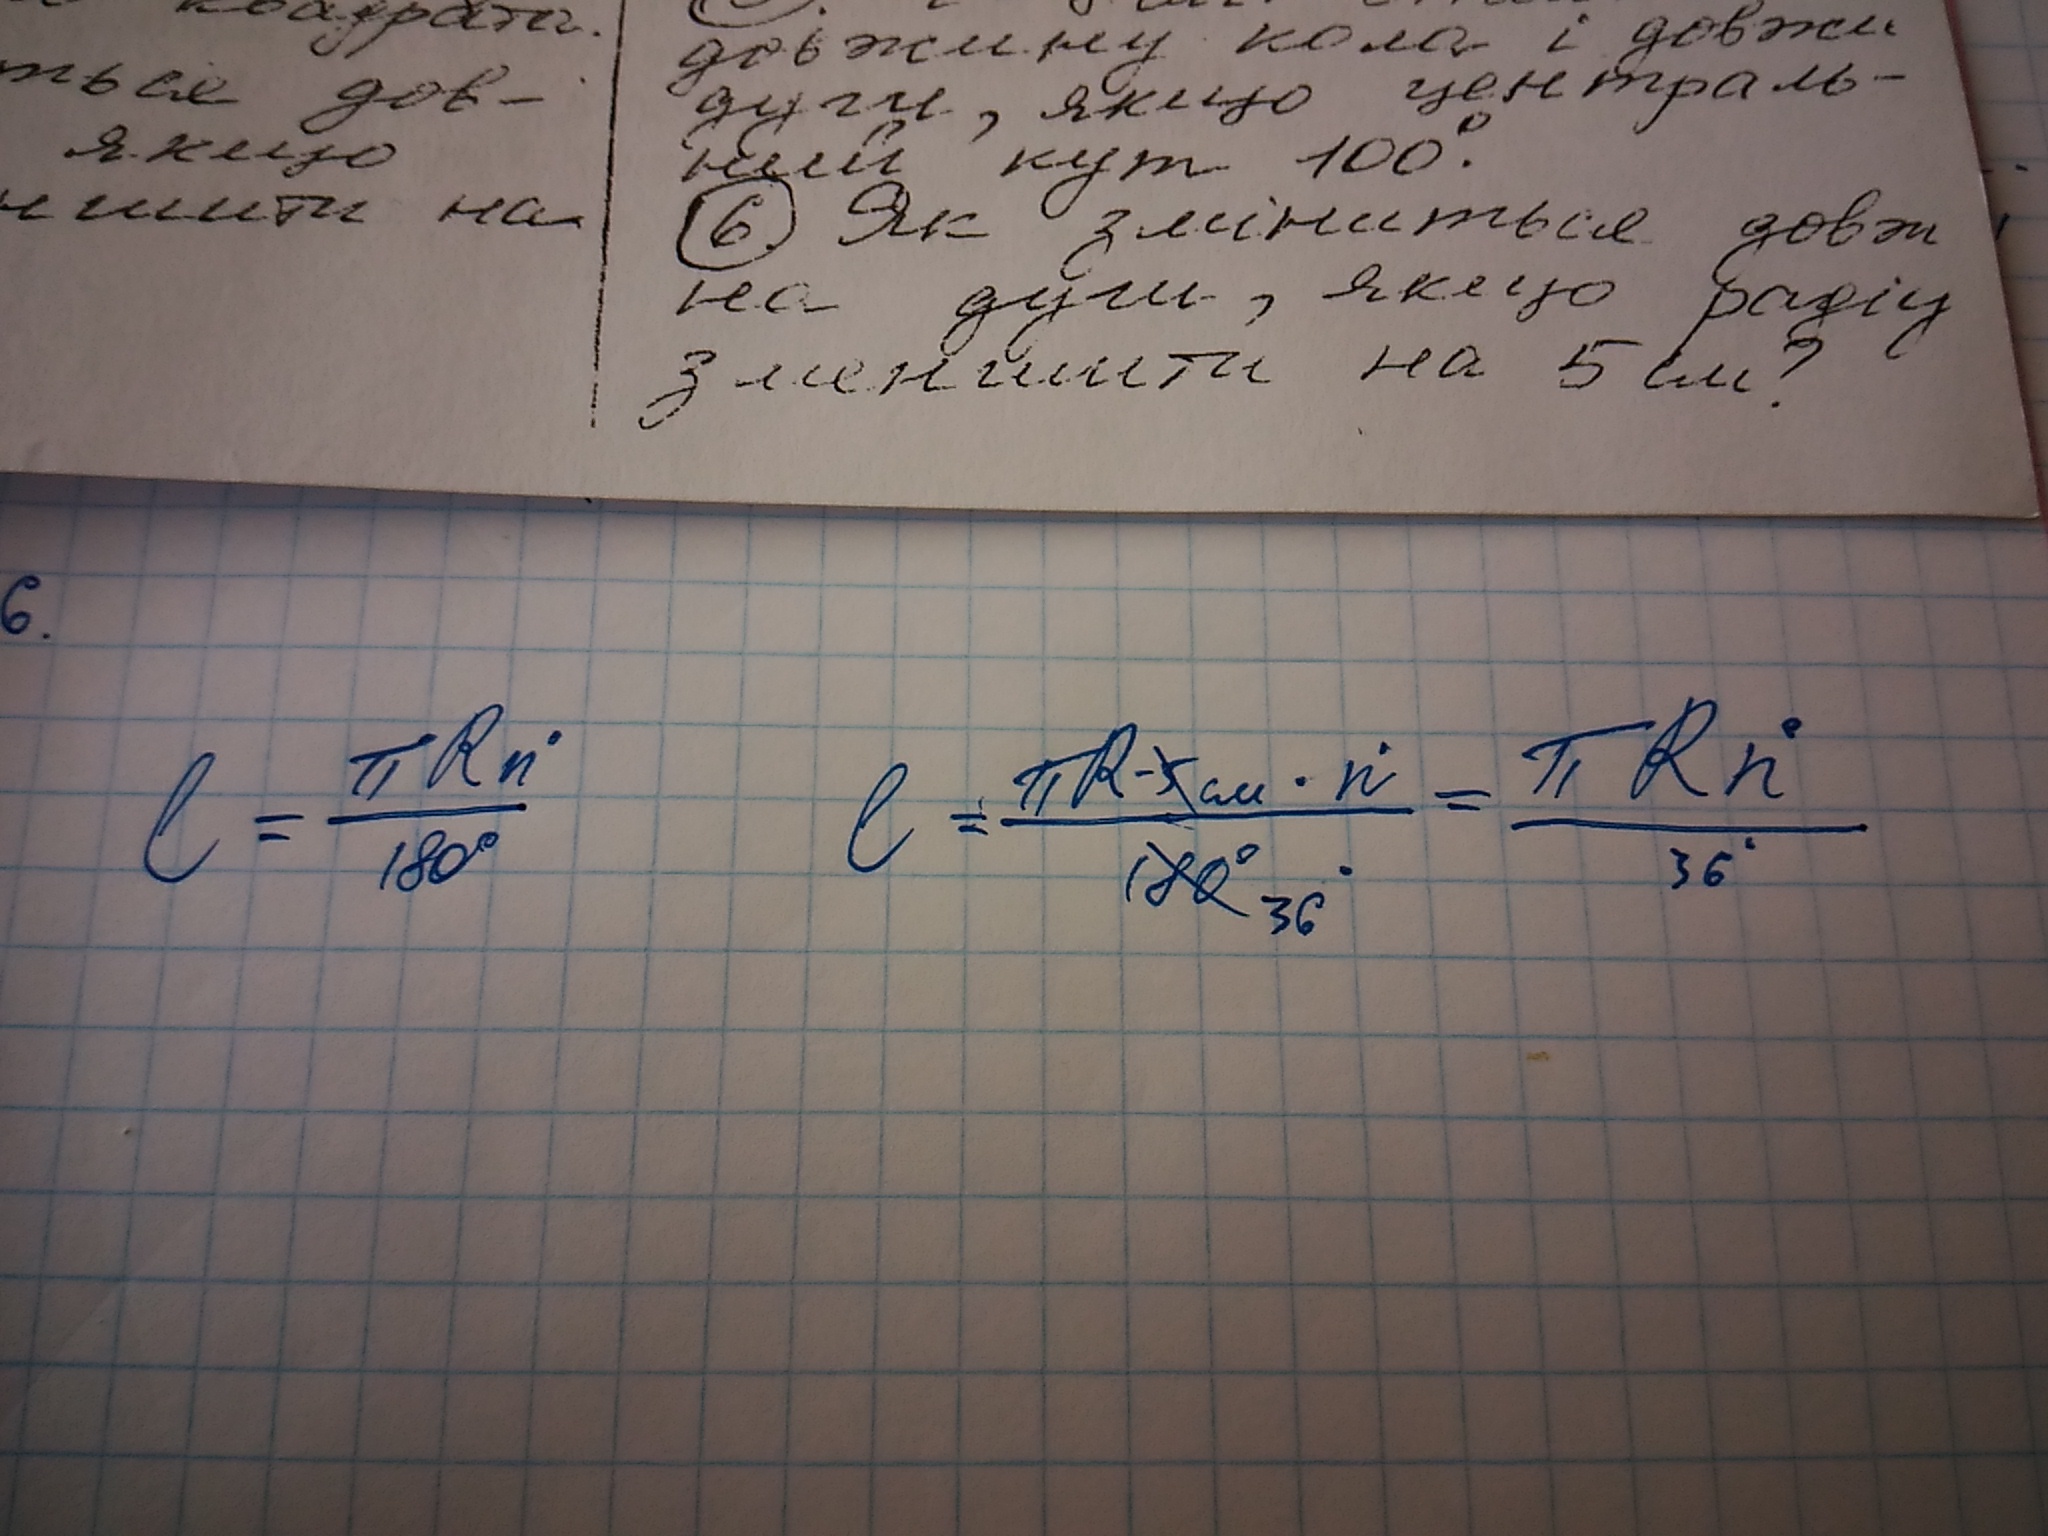 квадрата.
ться дов-
якщо
ншити на
довжину кола і довжи
дуги, якщо централь-
ний кут 100°.
6. Як зміниться довж
на дуги, якщо радіу
зменшити на 5 см?
6.
l = πRn° / 180°
l = πR-5см · n° / 180° 36° = πRn° / 36°